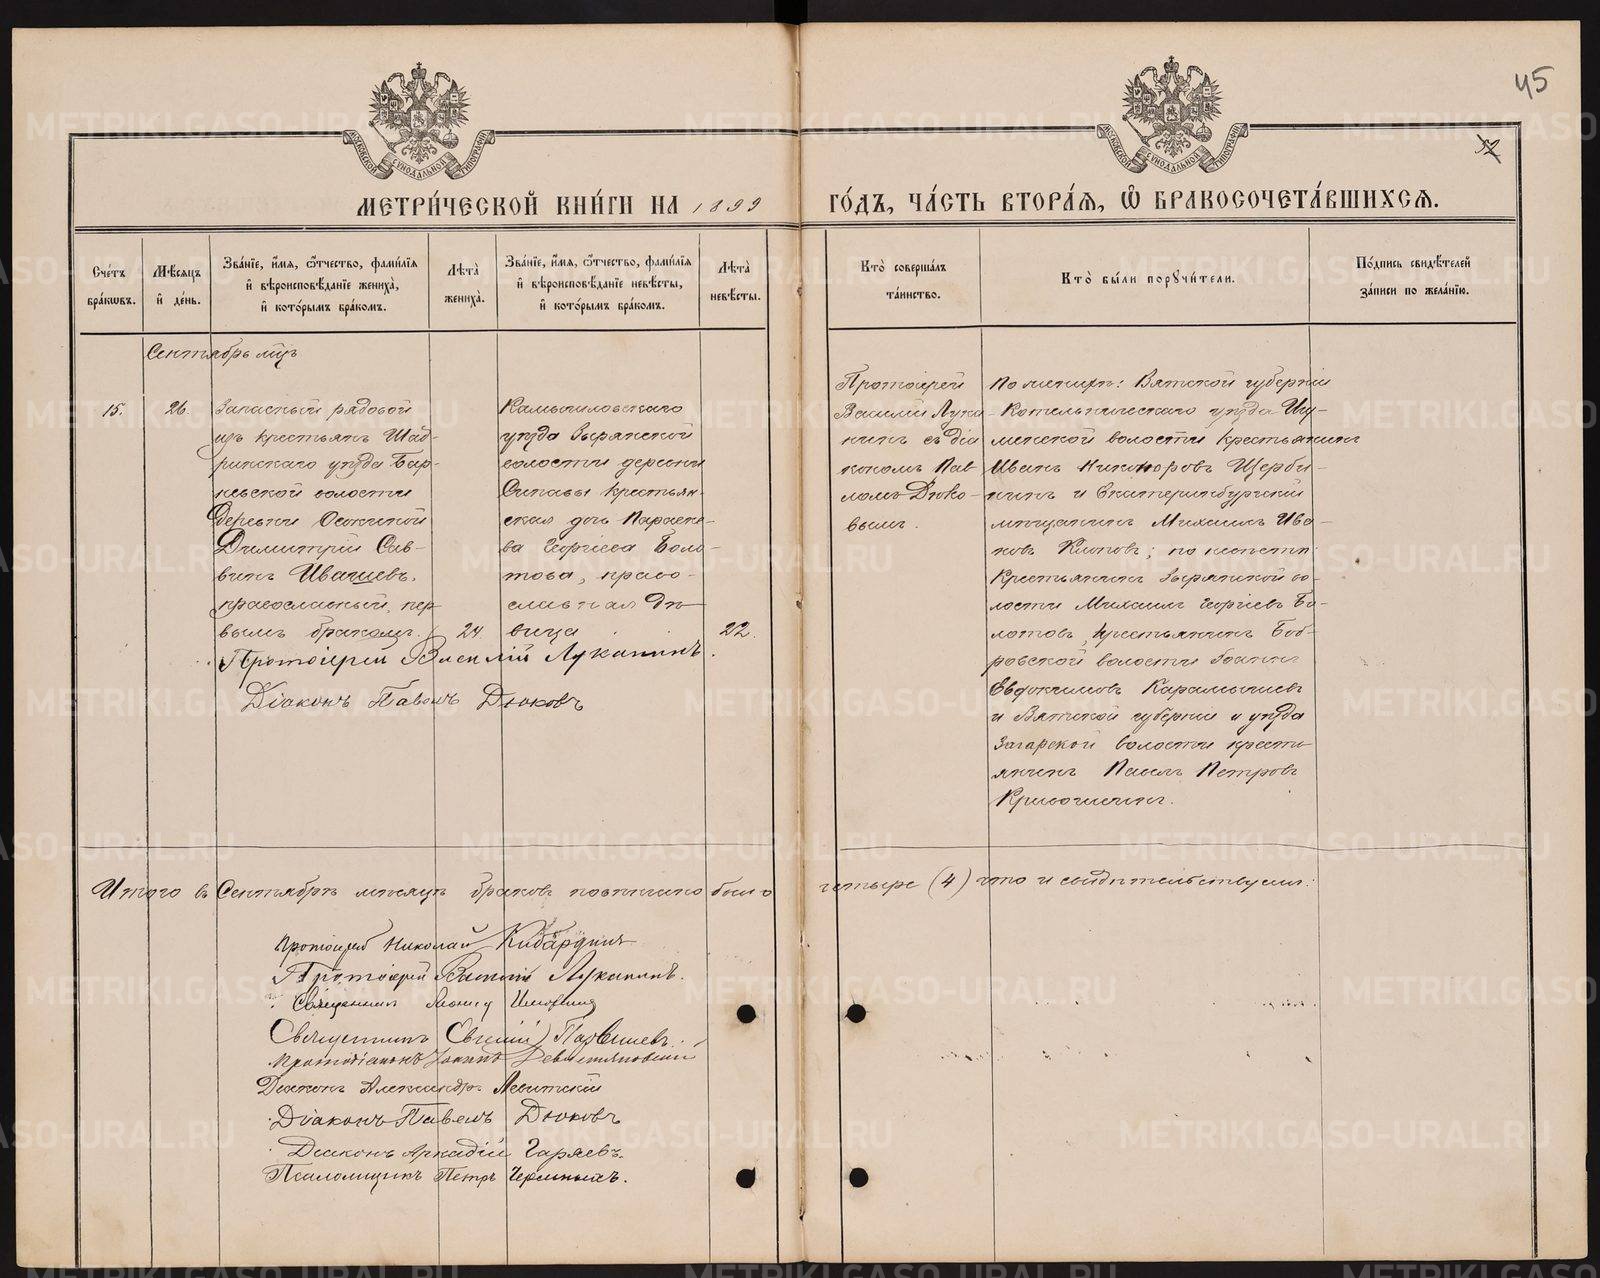 45
52
МЕТРИ́ЧЕСКОЙ КНИ́ГИ НА 1899 ГО́ДЪ, ЧА́СТЬ ВТОРА́Я, Ѿ БРАКОСОЧЕТА́ВШИХСЯ.
Сче́тъ бра́кѡвъ.
Мѣ́сяцъ и҆ де́нь.
Зва́нїе, и҆́мя, ѻ҆́тчество, фами́лїя и҆ вѣроисповѣ́данїе жениха̀, и҆ кото́рымъ бра́комъ.
Лѣта̀ жениха̀.
Зва́нїе, и҆́мя, ѻ҆́тчество, фами́лїя и҆ вѣроисповѣ́данїе невѣ́сты, и҆ кото́рымъ бра́комъ.
Лѣта̀ невѣ́сты.
Кто̀ соверша́лъ та́инство.
Кто̀ бы́ли порꙋчи́тели.
По́дпись свидѣ́телей за́писи по жела́нїю.
Сентябрь мцъ
15.
26.
Запасный рядовой
изъ крестьянъ Шад-
ринскаго уѣзда Бар-
невской волости
деревни Осокиной
Димитрій Сав-
винъ Ивачевъ,
православный, пер
вымъ бракомъ.
24.
Камышловскаго
уѣзда Зырянской
волости деревни
крестьян-
ская дочь Параске-
ва Георгіева Боло-
това, право-
славная дѣ
вица
22.
Протоіерей Василій Луканинъ.
Діаконъ Павелъ Дюковъ
Протоіерей
Василій Лука-
нинъ съ діа
кономъ Пав
ломъ Дюко-
вымъ.
По женихѣ: Вятской губерніи
Котельническаго уѣзда Игу-
менской волости крестьянинъ
Иванъ Никоноровъ Щерби-
нинъ и Екатеринбургскій
мѣщанинъ Михаилъ Ива-
новъ Клоповъ; по невѣстѣ:
Крестьянинъ Зырянской во-
лости Михаилъ Георгіевъ Бо-
лотовъ, крестьянинъ Боб-
ровской волости Іоаннъ
Евдокимовъ Карамышевъ
и Вятской губерніи и уѣзда
Загарской волости кресть-
янинъ Павелъ Петровъ
Кривошеинъ.
Итого въ Сентябрѣ мѣсяцѣ браковъ повѣнчано было четыре (4) что и свидѣтельствуемъ:
Протоіерей Николай Кибардинъ
Протоіерей Василій Луканинъ.
Священникъ Леонид
Священникъ Евгеній
Протодіаконъ Іоаннъ
Діаконъ Александръ Левитскій
Діаконъ Павелъ Дюковъ
Діаконъ Аркадій Гаряевъ.
Псаломщикъ Петръ Черемныхъ.
METRIKI.GASO-URAL.RU